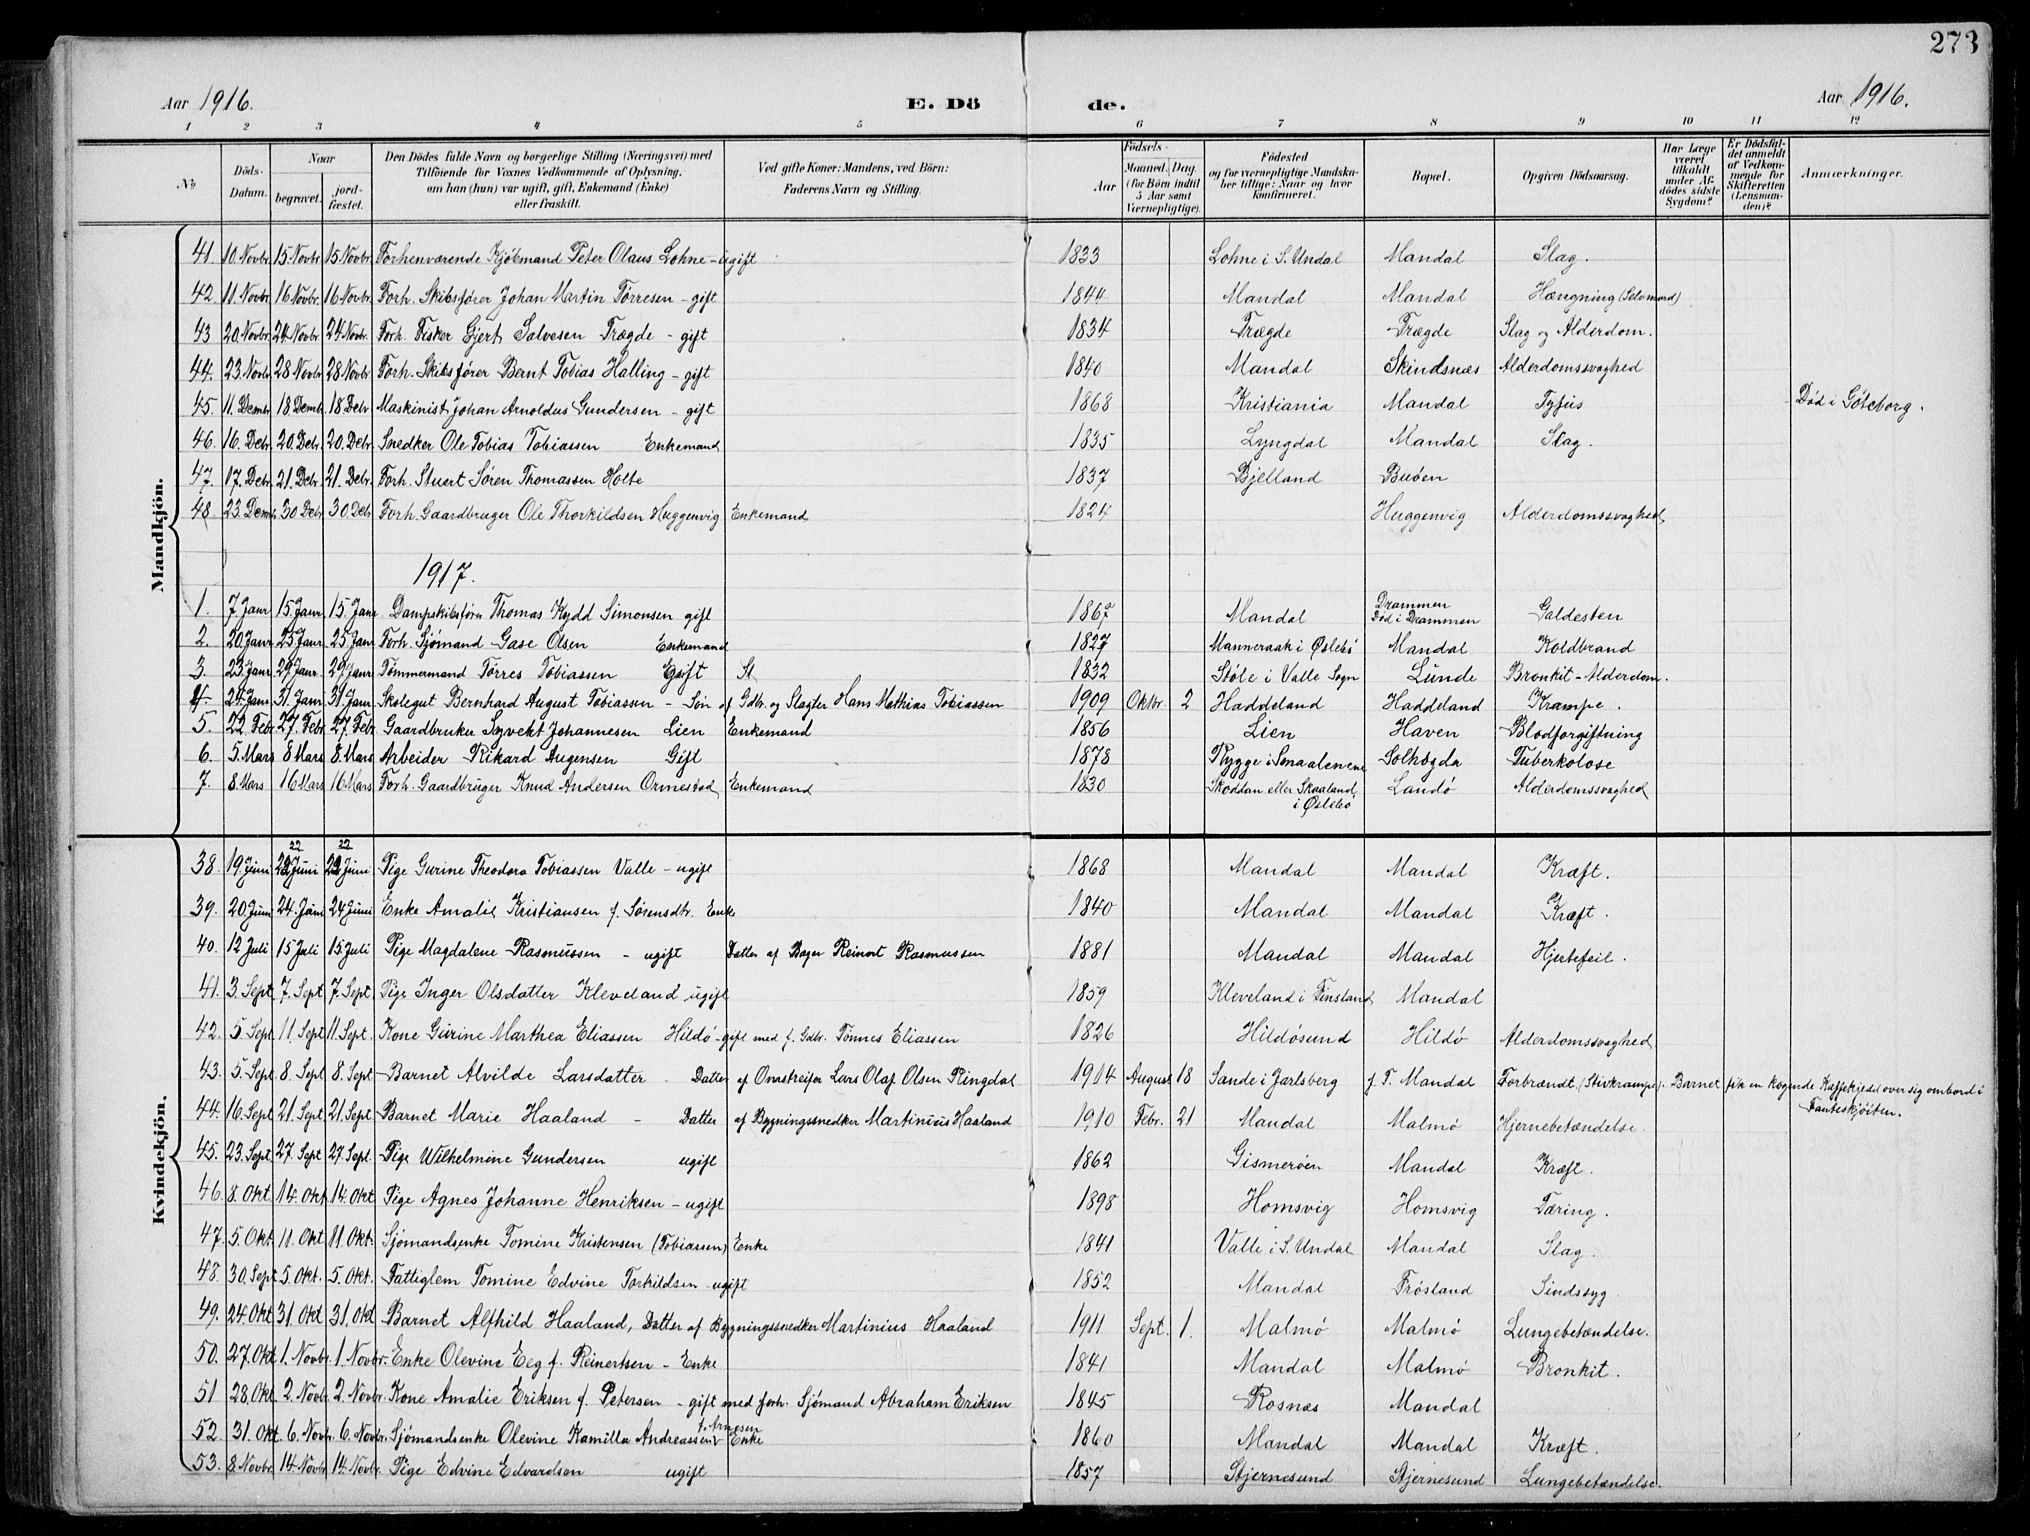 273
Aar 1916. E. Dö de. Aar 1916.
1 2 3 4 5 6 7 8 9 10 11 12
No Döds-Datum. Naar begravet. jord-fæstet. Den Dödes fulde Navn og borgerlige Stilling (Næringsvei) med Tilföiende for Voxnes Vedkommende af Oplysning, om han (hun) var ugift, gift, Enkemand (Enke) eller fraskilt. Ved gifte Koner: Mandens, ved Börn: Faderens Navn og Stilling. Födsels- Aar Maaned. Dag. (for Börn indtil 5 Aar samt Værnepligtige). Födested og for værnepligtige Mandskaber tillige: Naar og hvor konfirmeret. Bopæl. Opgiven Dödsaarsag. Har Læge været tilkaldt under Afdödes sidste Sygdom? Er Dödsfaldet anmeldt af Vedkommende for Skifteretten (Lensmanden)? Anmærkninger.
Mandkjön.
41. 10. Novbr. 15. Novbr. 15. Novbr. Forhenværende Kjøbmand Peter Olaus Lohne - ugift 1833 Lohne i S. Undal Mandal Slag.
42. 11. Novbr. 16 Novbr. 16 Novbr. Forh. Skibsfører Johan Martin Tørresen - gift 1844 Mandal Mandal Hængning (Selvmord)
43 20. Novbr. 24 Novbr. 24 Novbr. Forh. Fisker Gjert Salvesen Trægde - gift 1834 Trægde Trægde Slag og Alderdom.
44. 23. Novbr. 28 Novbr. 28 Novbr. Forh. Skibsfører Bernt Tobias Halling - gift 1840 Mandal Skindsnæs Alderdomssvaghed
45. 11. Dembr. 18 Demb. 18 Debr Maskinist Johan Arnoldus Gundersen - gift 1868 Kristiania Mandal Tyfus Død i Göteborg.
46. 16. Debr. 20. Debr. 20. Debr. Snedker Ole Tobias Tobiassen Enkemand 1835 Lyngdal Mandal Slag.
47. 17. Debr. 21. Debr. 21. Debr. Forh. Stuert Søren Thomassen Holte 1837 Bjelland Buøen
48. 23. Demb. 30 Debr. 30 Debr Forh. Gaardbruger Ole Thorkildsen Huggenvig Enkemand 1824 Huggenvig Alderdomssvaghed
1917.
1. 7 Janr 15. Janr. 15. Janr. Dampskibsføre Thomas Kydd Simonsen gift 1867 Mandal Drammen Død i Drammen Galdesten
2. 20. Janr. 25 Janr. 25. Janr Forh. Sjømand Gase Olsen Enkemand 1827 Manneraak i Øslebø Mandal Koldbrand
3. 23. Janr 29 Janr. 29 Janr Tømmermand Tørres Tobiassen Gift St 1832 Støle i Valle Sogn Lunde Bronkit - Alderdom.
4. 24. Janr 31. Janr 31. Janr Skolegut Bernhard August Tobiassen - Søn af Gdbr. og Slagter Hans Mathias Tobiassen 1909 Oktbr. 2 Haddeland Haddeland Krampe.
5. 22. Febr. 27. Febr 27. Febr. Gaardbruker Syvert Johannesen Lien Enkemand 1856 Lien Haven Blodforgiftning
6. 5. Mars 8 Mars 8. Mars Arbeider Rikard Augensen Gift 1878 Rygge i Smaalenene Solhøgda Tuberkolose
7. 8. Mars 16 Mars 16 Mars Forh. Gaardbruger Knud Andersen Ormestad Enkemand 1830 Skoddan eller Skaaland i Øslebø Landø Alderdomssvaghed
Kvindekjön.
38. 19. Juni 22 Juni 22 Juni Pige Gurine Theodora Tobiassen Valle - ugift 1868 Mandal Mandal Kræft.
39. 20 Juni 24. Juni 24 Juni Enke Amalie Kristiansen f. Sørensdtr. Enke 1840 Mandal Mandal Kræft.
40. 12 Juli 15 Juli 15. Juli Pige Magdalene Rasmussen - ugift Datter af Bager Reinert Rasmussen 1881 Mandal Mandal Hjertefeil.
41. 3. Sept. 7. Sept 7. Sept. Pige Inger Olsdatter Kleveland ugift 1859 Kleveland i Finsland Mandal
42. 5. Sept 11. Sept 11. Sept. Kone Gurine Marthea Eliassen Hildø - gift med f. Gdbr. Tønnes Eliassen 1826 Hildøsund Hildø Alderdomssvaghed
43. 5. Sept 8. Sept 8. Sept Barnet Alvilde Larsdatter. Datter af Omstreifer Lars Olaf Olsen Ringdal 1914 August 18 Sande i Jarlsberg f. T. Mandal Forbrændt (Stivkrampe). Barnet fik en kogende Kaffekjedel over sig ombord i Fanteskjøiten.
44. 16. Sept 21. Sept 21. Sept Barnet Marie Haaland - Datter af Bygningssnedker Martinius Haaland 1910 Febr. 21 Mandal Malmø Hjernebetændelse.
45. 23. Sept. 27. Sept 27. Sept. Pige Wilhelmine Gundersen ugift 1862 Gismerøen Mandal Kræft.
46. 8. Okt. 14. Okt 14. Okt Pige Agnes Johanne Henriksen - ugift 1898 Homsvig Homsvig Tæring.
47. 5. Okt. 11. Okt 11. Okt. Sjømandsenke Tomine Kristensen (Tobiassen) Enke 1841 Valle i S. Undal Mandal Slag.
48. 30. Sept 5. Okt. 5. Okt. Fattiglem Tomine Edvine Torkildsen - ugift 1852 Mandal Frøsland Sindssyg
49. 24. Okt 31. Okt 31. Okt Barnet Alfhild Haaland, Datter af Bygningssnedker Martinius Haaland 1911 Sept. 1. Malmø Malmø Lungebetændelse.
50. 27. Okt. 1. Novbr. 1. Novbr. Enke Olevine Eeg f. Reinertsen - Enke 1841 Mandal Malmø Bronkit.
51 28. Okt. 2. Novbr. 2. Novbr. Kone Amalie Eriksen f. Petersen - gift med forh. Sjømand Abraham Eriksen 1845 Rosnæs Mandal
52. 31. Okt. 6. Novbr. 6. Novbr. Sjømandsenke Olevine Kamilla Andreassen f. Arnesen Enke 1860 Mandal Mandal Kræft.
53. 8. Novbr. 14. Novbr. 14. Novbr. Pige Edvine Edvardsen ugift 1857 Stjernesund Stjernesund Lungebetændelse.